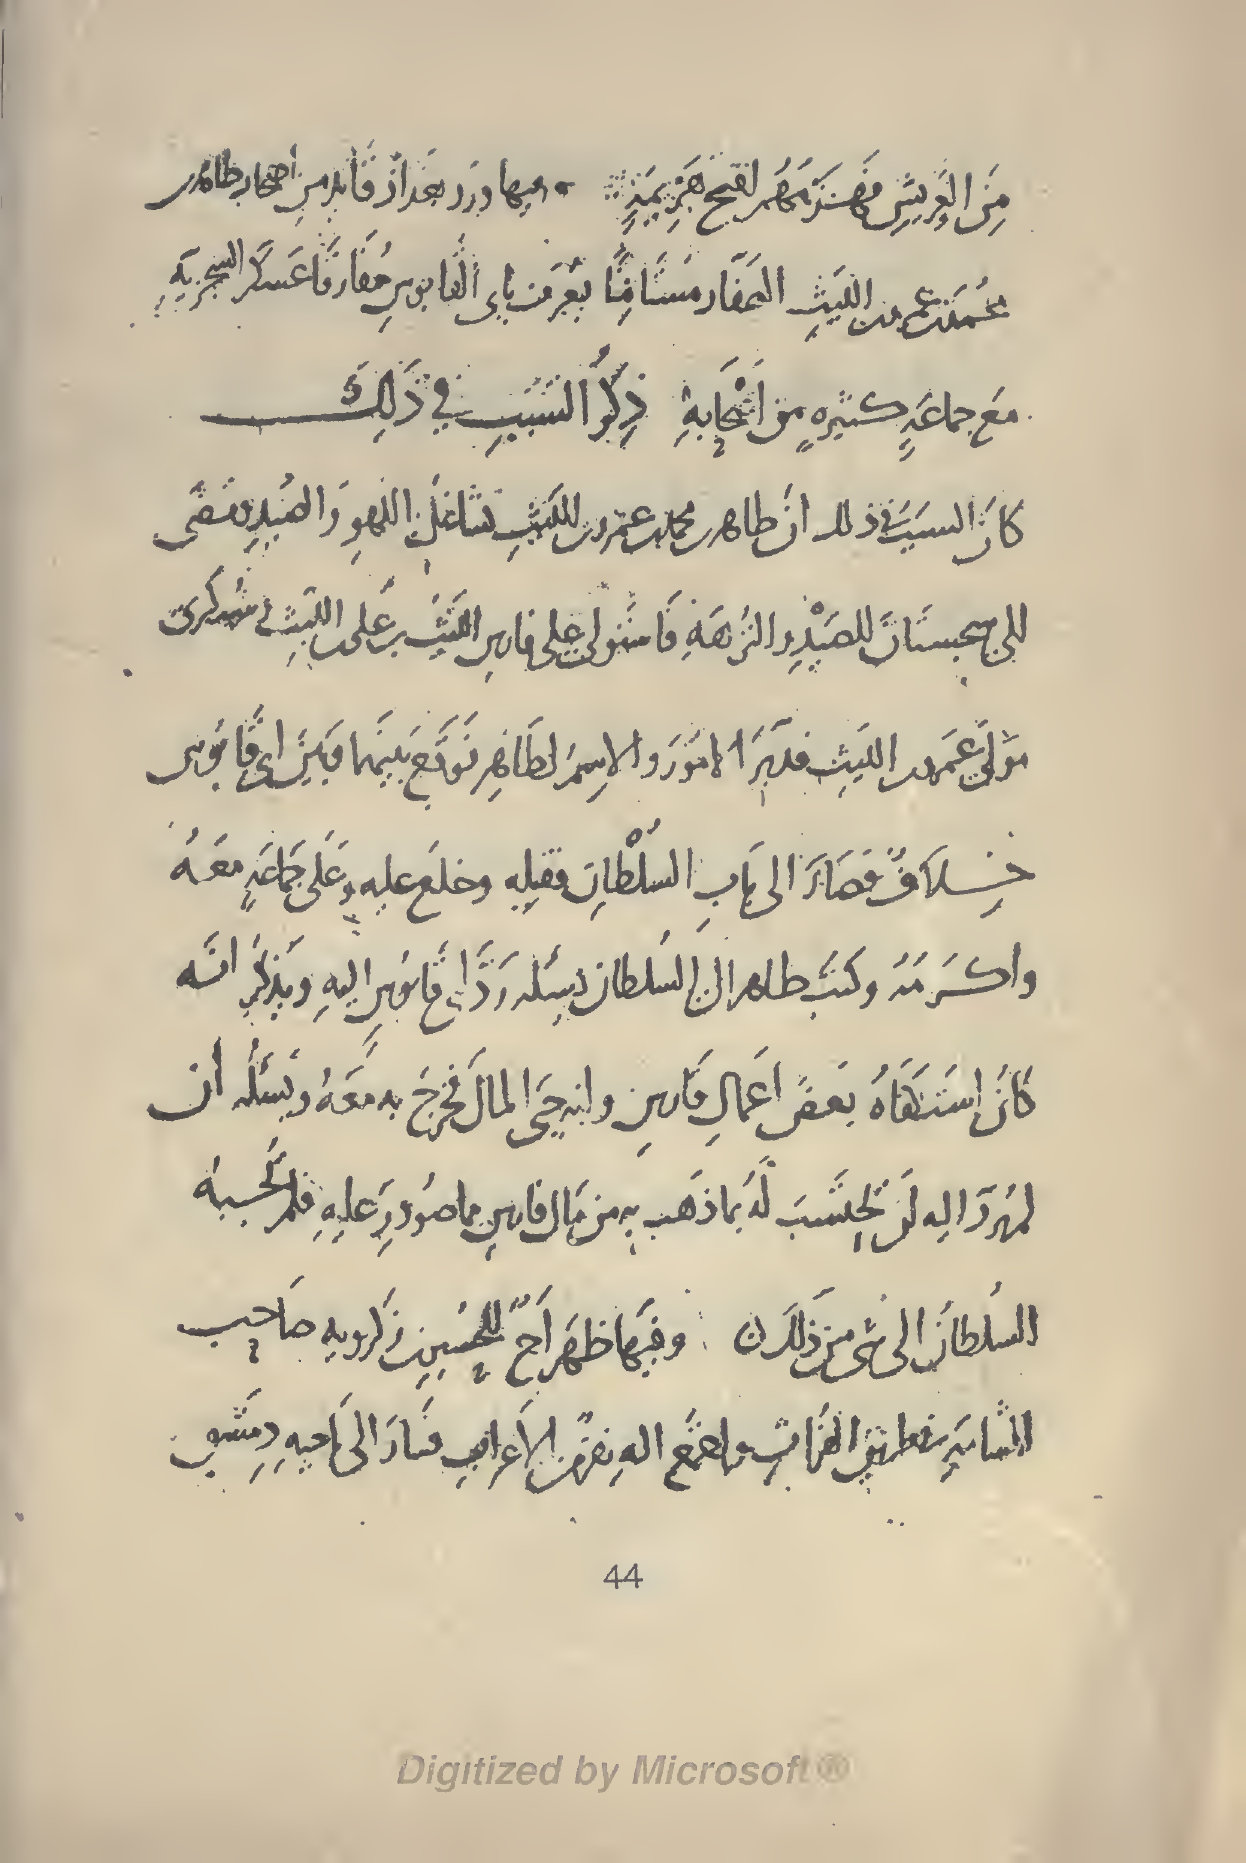 من العريش فهزمهم اقبح هزيمة وفيها ورد بغداذ قائد من اصحاب طاهر بن
محمد بن عمرو بن الليث الصفار مستأمنًا يعرف بابى قابوس مفارقًا عسكر السجزية
مع جماعةٍ كثيرهٍ من أصحابهِ ذكر السبب في ذلك
كان السبب في ذلك ان طاهر بن محمد بن عمرو بن الليث تشاغل باللهو والصيد ومضى
الى سجستان للصيد والنزهة فاستولى على فارس الليث بن على بن الليث وسبكرى
مولى عمرو بن الليث فدبرا الامور والاسم لطاهر فوقع بينهما وبين ابى قابوس
خلاف فصار الى باب السلطان فقبله وخلع عليه وعلى جماعةٍ معه
واكرمه وكتب طاهر الى السلطان يسئله رد ابى قابوس اليه ويذكر انه
كان استكفاه بعض اعمال فارس وانه جبى المال فخرج به معه ويسئله أن
لم يرد اليه ان يحتسب له بما ذهب به من مال فارس مما صودر عليه فلم يجبه
السلطان الى شى من ذلك وفيها ظهر أخ للحسين بن زكرويه صاحب
الشامة بطريق الفرات واجتمع اليه نفر من الأعراب فسار الى ناحيه دمشق
44
Digitized by Microsoft®